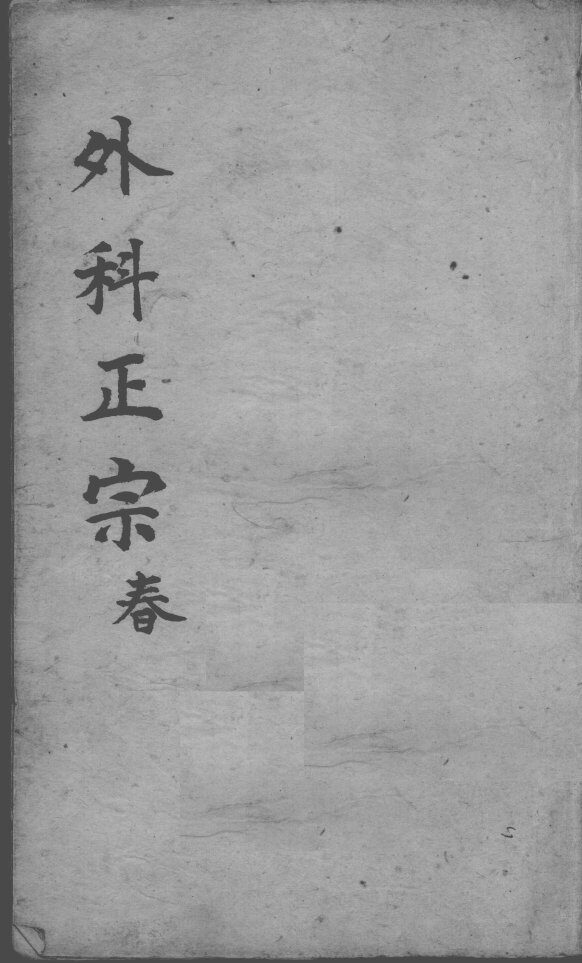 外科正宗春